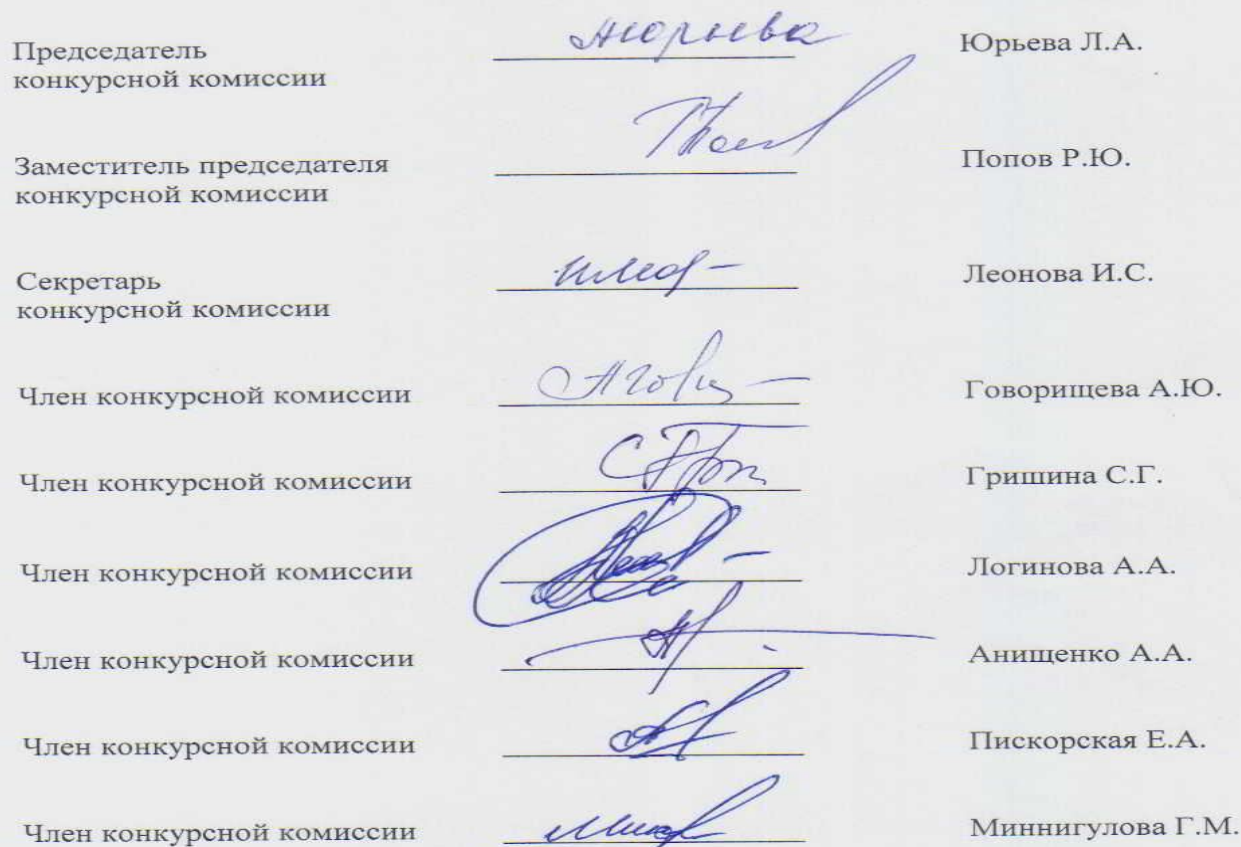 Председатель
конкурсной комиссии Юрьева Л.А.
Заместитель председателя
конкурсной комиссии Попов Р.Ю.
Секретарь
конкурсной комиссии Леонова И.С.
Член конкурсной комиссии Говорищева А.Ю.
Член конкурсной комиссии Гришина С.Г.
Член конкурсной комиссии Логинова А.А.
Член конкурсной комиссии Анищенко А.А.
Член конкурсной комиссии Пискорская Е.А.
Член конкурсной комиссии Миннигулова Г.М.